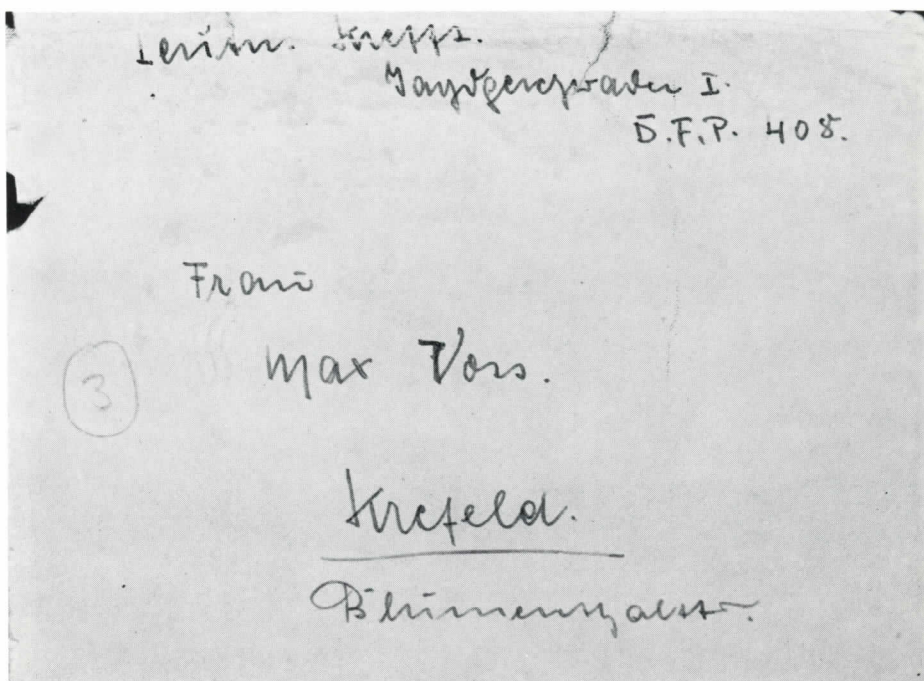 Leutn. Krefft.
Jagdgeschwader I.
D.F.P. 408.
Frau
Max Voss.
3
Krefeld.
Blumenthalstr.